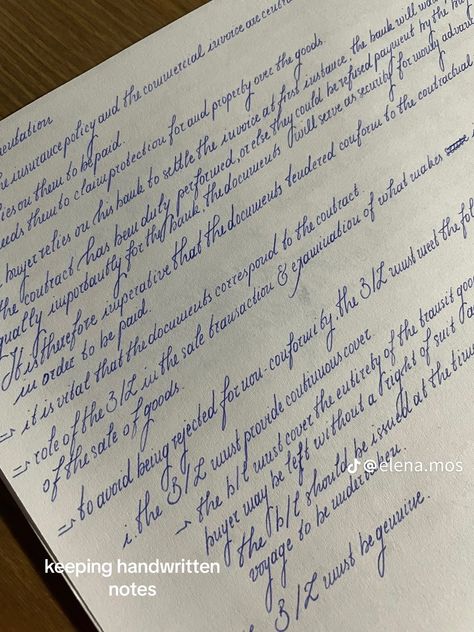 mentation
the insurance policy and the commercial invoice are central
lies on them to be paid.
eeds them to claim protection for and property over the goods.
buyer relies on his bank to settle the invoice at first instance, the bank will wa
the contract has been duly performed, or else they could be refused payment by the bu
equally importantly for the bank, the documents will serve as security for money advanc
It is therefore imperative that the documents tendered conform to the contractual
in order to be paid.
⇒ it is vital that the documents correspond to the contract.
⇒ role of the B/L in the sale transaction & examination of what makes
of the sale of goods.
⇒ to avoid being rejected for non-conformity the B/L must meet the fol
i. the B/L must provide continuous cover.
→ the b/l must cover the entirety of the transit goo
buyer may be left without a right of suit
the b/l should be issued at the time
voyage to be undertaken.
B/L must be genuine.
@elena.mos
keeping handwritten
notes